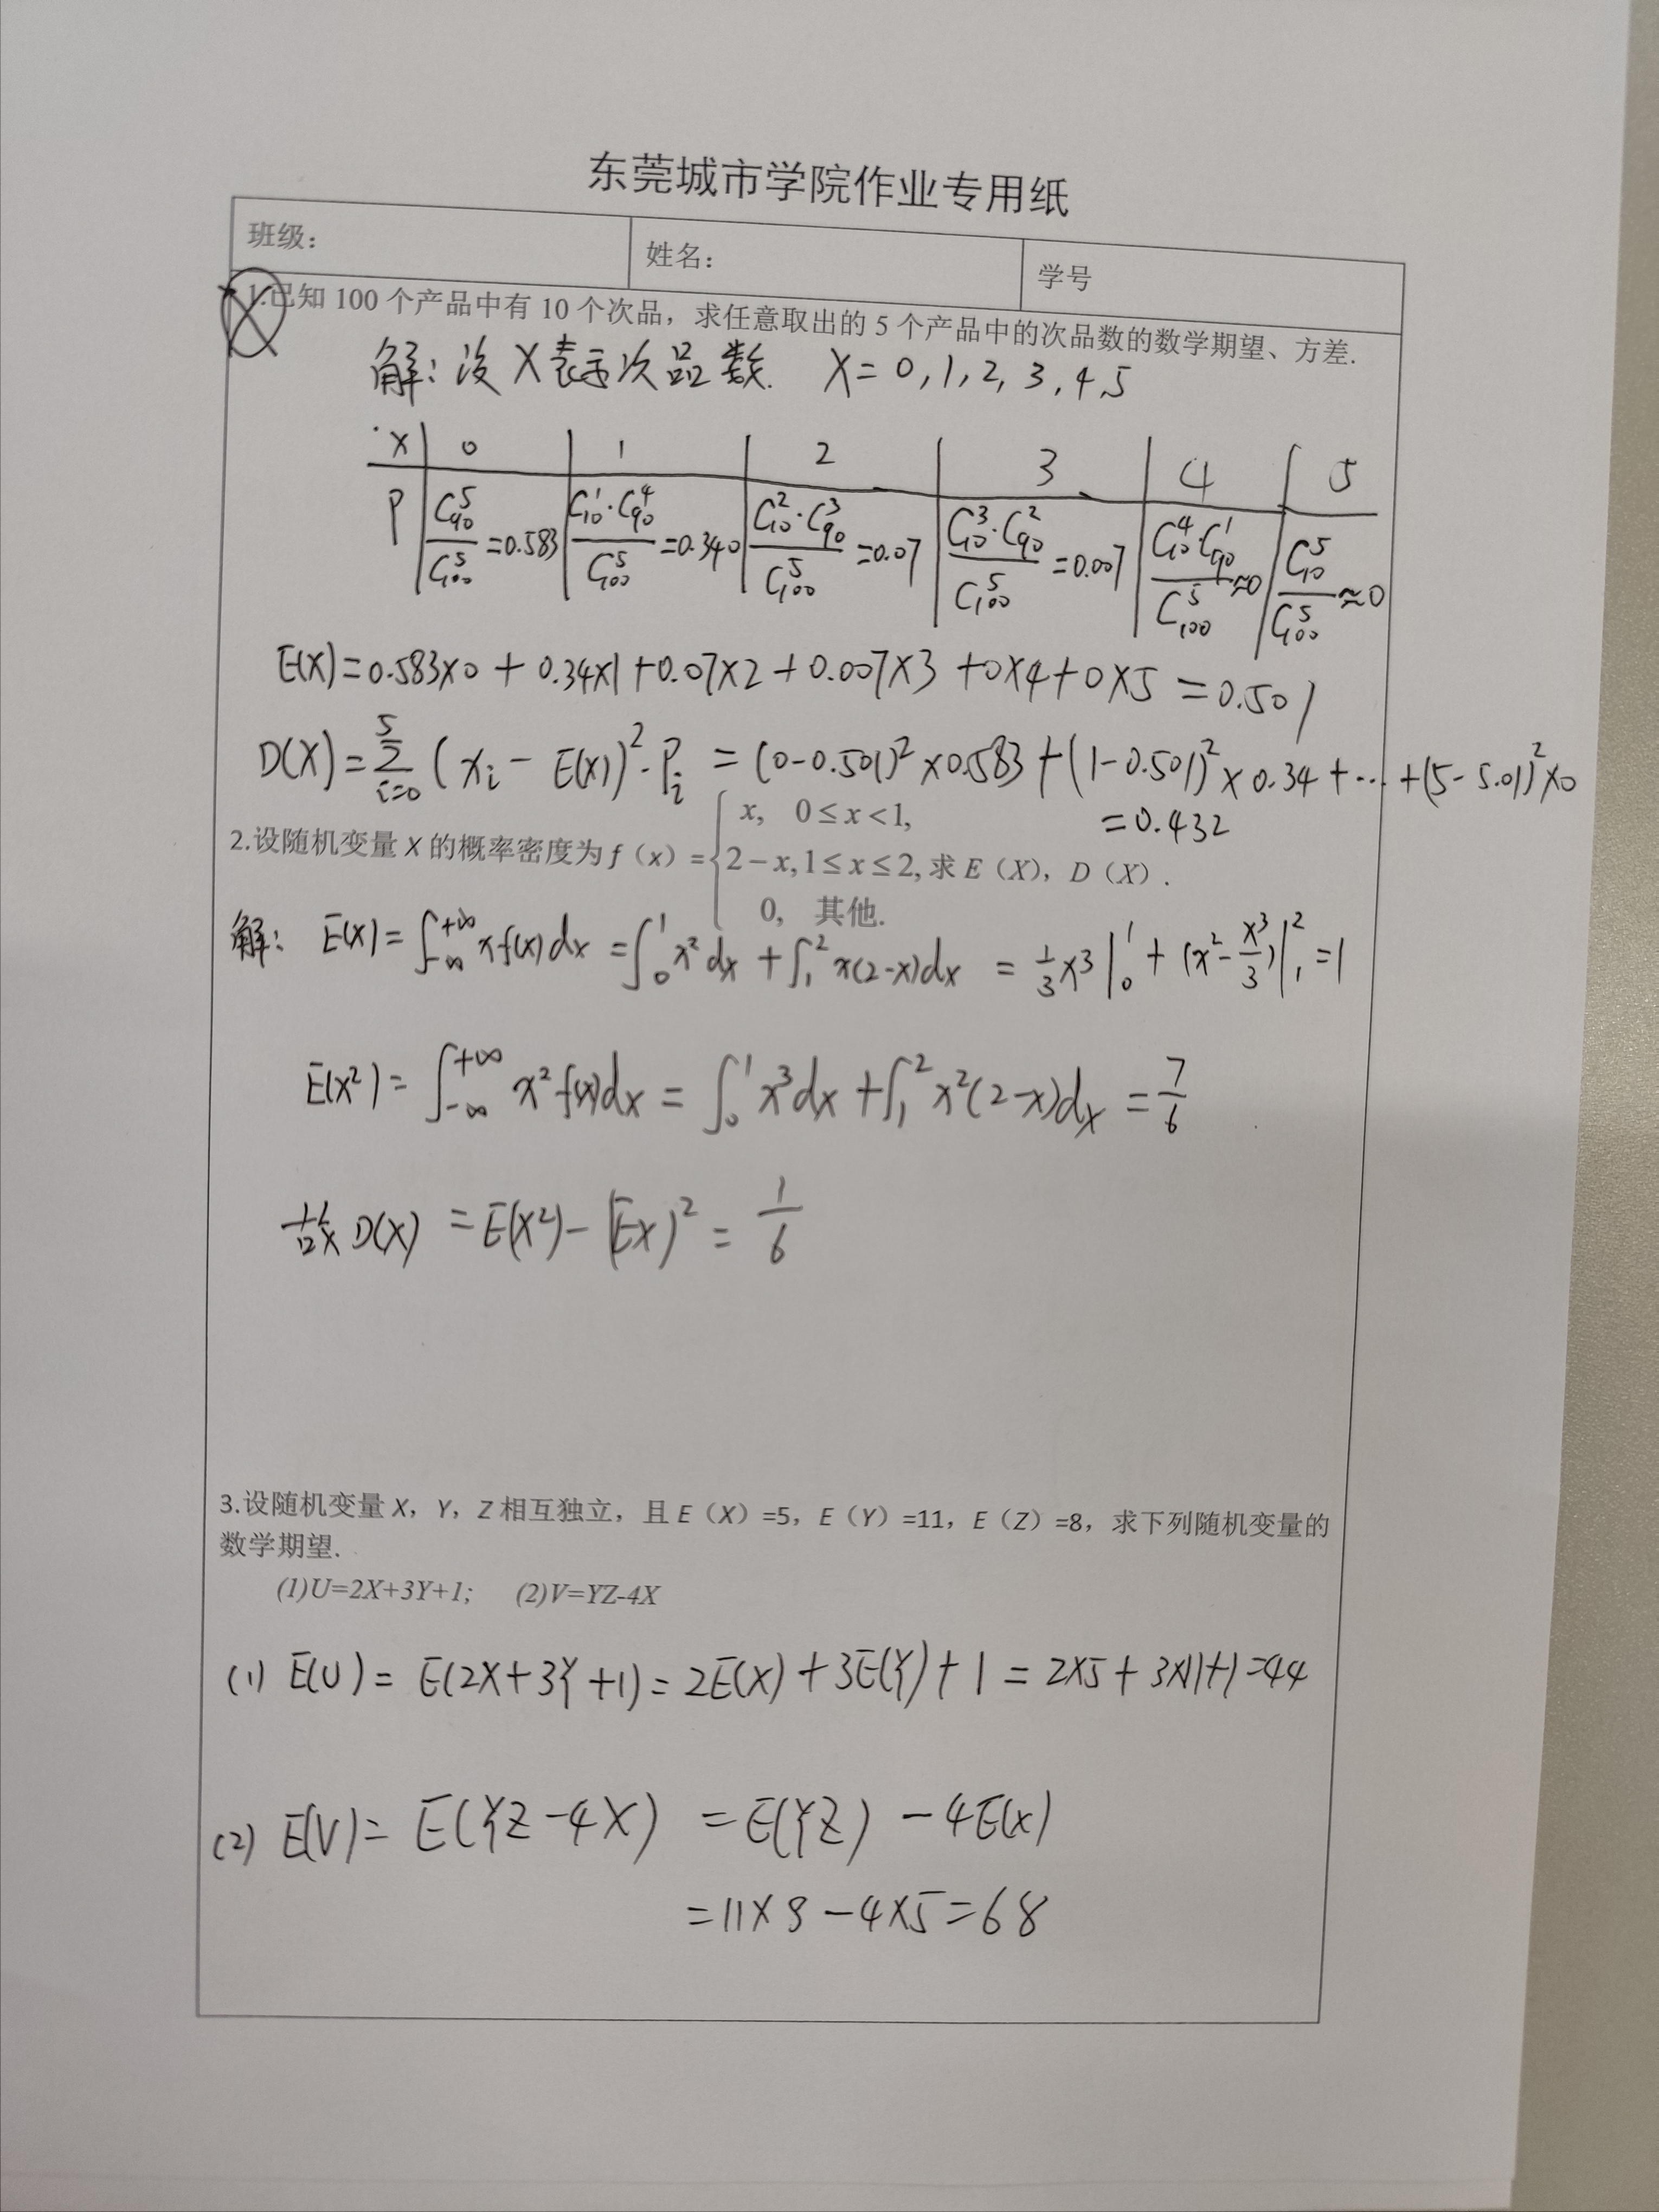 东莞城市学院作业专用纸
班级： 姓名： 学号
1.已知 100 个产品中有 10 个次品，求任意取出的 5 个产品中的次品数的数学期望、方差.
解：设 X 表示次品数. X = 0, 1, 2, 3, 4, 5
X | 0 | 1 | 2 | 3 | 4 | 5
P | C₉₀⁵/C₁₀₀⁵ =0.583 | C₁₀¹·C₉₀⁴/C₁₀₀⁵ =0.340 | C₁₀²·C₉₀³/C₁₀₀⁵ =0.07 | C₁₀³·C₉₀²/C₁₀₀⁵ =0.007 | C₁₀⁴·C₉₀¹/C₁₀₀⁵ ≈0 | C₁₀⁵/C₁₀₀⁵ ≈0
E(X)=0.583×0 + 0.34×1+0.07×2+0.007×3 +0×4+0×5 =0.501
D(X)=∑_{i=0}^{5} (xᵢ - E(X))²·Pᵢ = (0-0.501)²×0.583+(1-0.501)²×0.34+…+(5-5.01)²×0
=0.432
2.设随机变量 X 的概率密度为 f（x）= { x, 0≤x<1, 2−x,1≤x≤2, 0, 其他. 求 E（X），D（X）.
解： E(X)=∫_{-∞}^{+∞} xf(x)dx =∫₀¹x²dx +∫₁²x(2-x)dx = 1/3 x³|₀¹ + (x²-x³/3)|₁² =1
E(X²)= ∫_{-∞}^{+∞} x²f(x)dx = ∫₀¹x³dx +∫₁²x²(2-x)dx = 7/6
故D(X) =E(X²)-(EX)² = 1/6
3.设随机变量 X，Y，Z 相互独立，且 E（X）=5，E（Y）=11，E（Z）=8，求下列随机变量的
数学期望.
(1)U=2X+3Y+1; (2)V=YZ-4X
(1) E(U)= E(2X+3Y+1)=2E(X)+3E(Y)+1 = 2×5+3×11+1=44
(2) E(V)= E(YZ-4X) =E(YZ) -4E(X)
=11×8-4×5=68